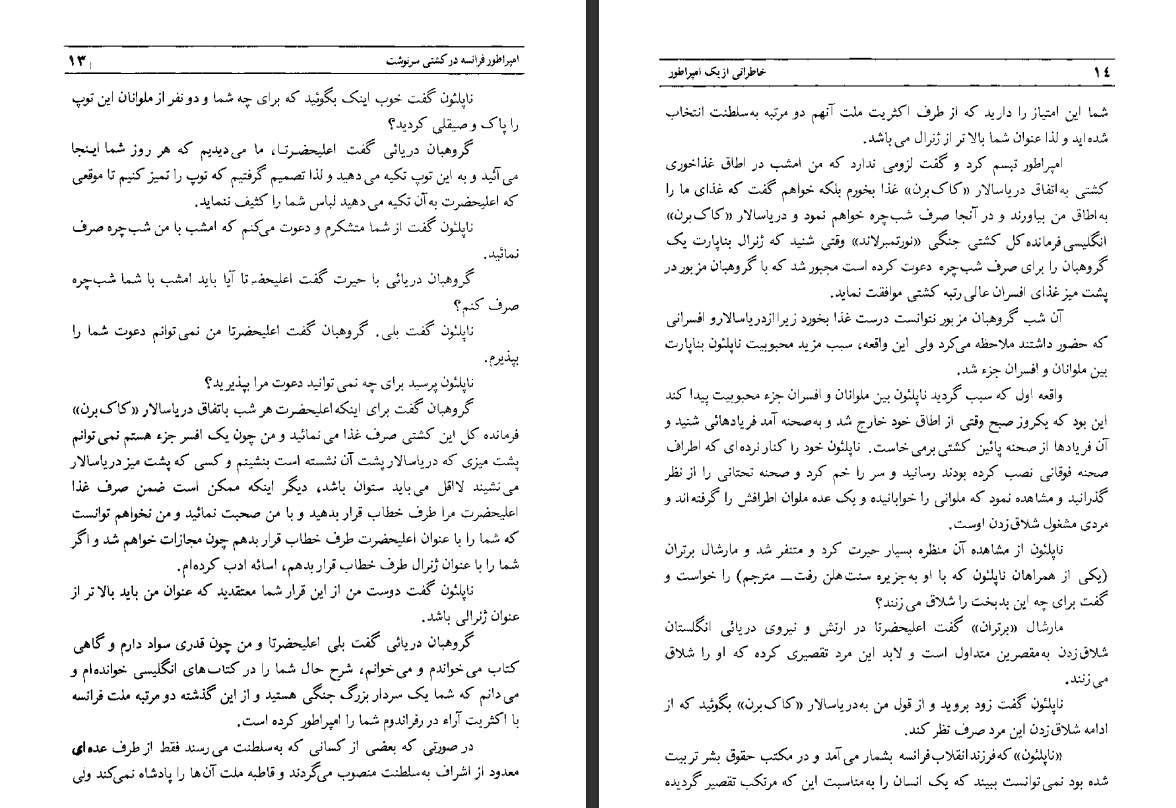 امپراطور فرانسه در کشتی سرنوشت ۱۳
ناپلئون گفت خوب اینک بگوئید که برای چه شما و دو نفر از ملوانان این توپ
را پاک و صیقلی کردید؟
گروهبان دریائی گفت اعلیحضرتا، ما می‌دیدیم که هر روز شما اینجا
می‌آئید و به این توپ تکیه می‌دهید و لذا تصمیم گرفتیم که توپ را تمیز کنیم تا موقعی
که اعلیحضرت به‌آن تکیه می‌دهید لباس شما را کثیف ننماید.
ناپلئون گفت از شما متشکرم و دعوت می‌کنم که امشب با من شب‌چره صرف
نمائید.
گروهبان دریائی با حیرت گفت اعلیحضرتا آیا باید امشب با شما شب‌چره
صرف کنم؟
ناپلئون گفت بلی. گروهبان گفت اعلیحضرتا من نمی‌توانم دعوت شما را
بپذیرم.
ناپلئون پرسید برای چه نمی‌توانید دعوت مرا بپذیرید؟
گروهبان گفت برای اینکه اعلیحضرت هر شب باتفاق دریاسالار «کاک‌برن»
فرمانده کل این کشتی صرف غذا می‌نمائید و من چون یک افسر جزء هستم نمی‌توانم
پشت میزی که دریاسالار پشت آن نشسته است بنشینم و کسی که پشت میز دریاسالار
می‌نشیند لااقل می‌باید ستوان باشد، دیگر اینکه ممکن است ضمن صرف غذا
اعلیحضرت مرا طرف خطاب قرار بدهید و با من صحبت نمائید و من نخواهم توانست
که شما را با عنوان اعلیحضرت طرف خطاب قرار بدهم چون مجازات خواهم شد و اگر
شما را با عنوان ژنرال طرف خطاب قرار بدهم، اسائه ادب کرده‌ام.
ناپلئون گفت دوست من از این قرار شما معتقدید که عنوان من باید بالاتر از
عنوان ژنرالی باشد.
گروهبان دریائی گفت بلی اعلیحضرتا و من چون قدری سواد دارم و گاهی
کتاب می‌خواندم و می‌خوانم، شرح حال شما را در کتاب‌های انگلیسی خوانده‌ام و
می‌دانم که شما یک سردار بزرگ جنگی هستید و از این گذشته دو مرتبه ملت فرانسه
با اکثریت آراء در رفراندوم شما را امپراطور کرده است.
در صورتی که بعضی از کسانی که به‌سلطنت می‌رسند فقط از طرف عده‌ای
معدود از اشراف به‌سلطنت منصوب می‌گردند و قاطبه ملت آن‌ها را پادشاه نمی‌کند ولی
۱۴ خاطراتی از یک امپراطور
شما این امتیاز را دارید که از طرف اکثریت ملت آنهم دو مرتبه به‌سلطنت انتخاب
شده‌اید و لذا عنوان شما بالاتر از ژنرال می‌باشد.
امپراطور تبسم کرد و گفت لزومی ندارد که من امشب در اطاق غذاخوری
کشتی به‌اتفاق دریاسالار «کاک‌برن» غذا بخورم بلکه خواهم گفت که غذای ما را
به‌اطاق من بیاورند و در آنجا صرف شب‌چره خواهم نمود و دریاسالار «کاک‌برن»
انگلیسی فرمانده کل کشتی جنگی «نورتمبرلاند» وقتی شنید که ژنرال بناپارت یک
گروهبان را برای صرف شب‌چره دعوت کرده است مجبور شد که با گروهبان مزبور در
پشت میز غذای افسران عالی رتبه کشتی موافقت نماید.
آن شب گروهبان مزبور نتوانست درست غذا بخورد زیرا ازدریاسالارو افسرانی
که حضور داشتند ملاحظه می‌کرد ولی این واقعه، سبب مزید محبوبیت ناپلئون بناپارت
بین ملوانان و افسران جزء شد.
واقعه اول که سبب گردید ناپلئون بین ملوانان و افسران جزء محبوبیت پیدا کند
این بود که یکروز صبح وقتی از اطاق خود خارج شد و به‌صحنه آمد فریادهائی شنید و
آن فریادها از صحنه پائین کشتی برمی‌خاست. ناپلئون خود را کنار نرده‌ای که اطراف
صحنه فوقانی نصب کرده بودند رسانید و سر را خم کرد و صحنه تحتانی را از نظر
گذرانید و مشاهده نمود که ملوانی را خوابانیده و یک عده ملوان اطرافش را گرفته‌اند و
مردی مشغول شلاق‌زدن اوست.
ناپلئون از مشاهده آن منظره بسیار حیرت کرد و متنفر شد و مارشال برتران
(یکی از همراهان ناپلئون که با او به‌جزیره سنت‌هلن رفت ـ مترجم) را خواست و
گفت برای چه این بدبخت را شلاق می‌زنند؟
مارشال «برتران» گفت اعلیحضرتا در ارتش و نیروی دریائی انگلستان
شلاق‌زدن به‌مقصرین متداول است و لابد این مرد تقصیری کرده که او را شلاق
می‌زنند.
ناپلئون گفت زود بروید و از قول من به‌دریاسالار «کاک‌برن» بگوئید که از
ادامه شلاق‌زدن این مرد صرف نظر کند.
«ناپلئون» که فرزند انقلاب فرانسه بشمار می‌آمد و در مکتب حقوق بشر تربیت
شده بود نمی‌توانست ببیند که یک انسان را به‌مناسبت این که مرتکب تقصیر گردیده